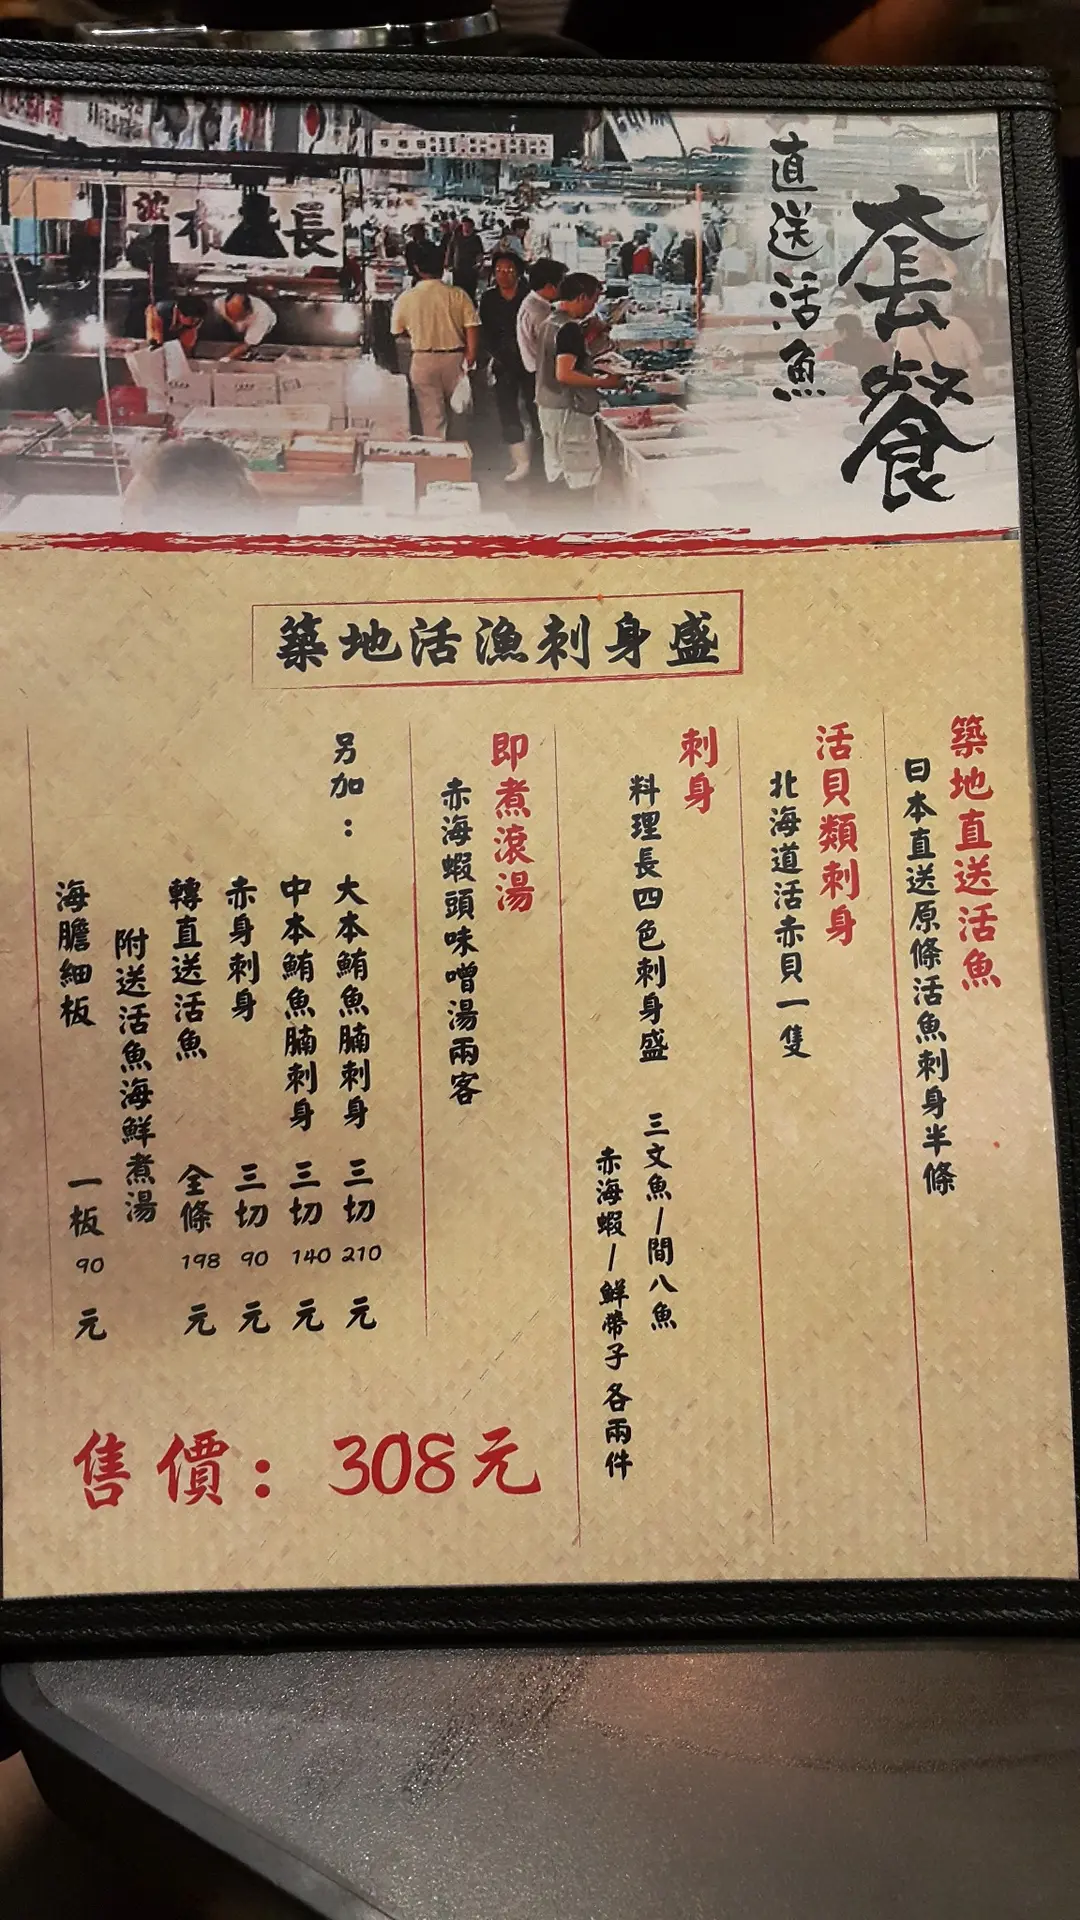 套餐
直送活魚
築地活漁刺身盛
築地直送活魚
日本直送原條活魚刺身半條
活貝類刺身
北海道活赤貝一隻
刺身
料理長四色刺身盛 三文魚/間八魚
赤海蝦/鮮帶子 各兩件
即煮滾湯
赤海蝦頭味噌湯兩客
另加：大本鮪魚腩刺身 三切 210 元
中本鮪魚腩刺身 三切 140 元
赤身刺身 三切 90 元
轉直送活魚 全條 198 元
附送活魚海鮮煮湯
海膽細板 一板 90 元
售價：308元